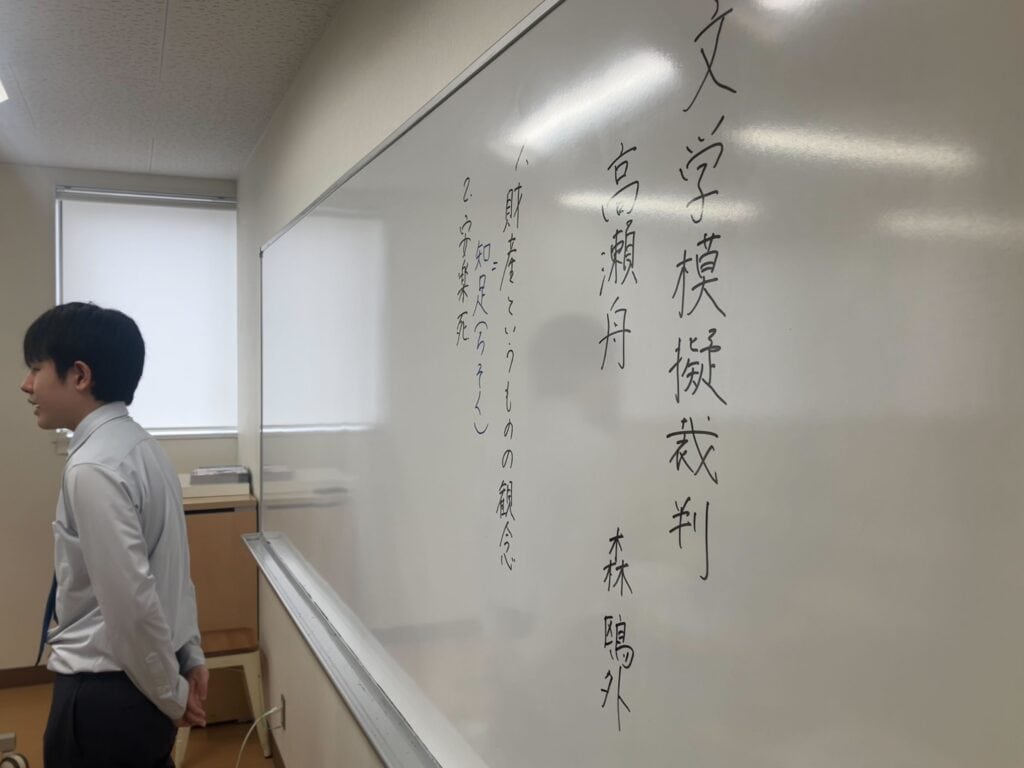 文学模擬裁判
高瀬舟 森鴎外
1. 財産というものの観念
=知足(ちそく)
2. 安楽死